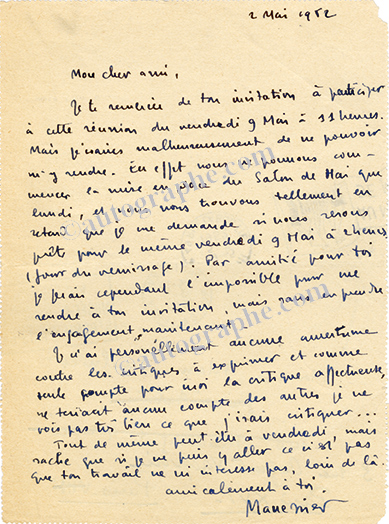 2 Mai 1952
Mon cher ami,
Je te remercie de ton invitation à participer
à cette réunion du vendredi 9 Mai à 11 heures.
Mais je crains malheureusement de ne pouvoir
m'y rendre. En effet nous ne pouvons com-
mencer la mise en place du Salon de Mai que
lundi, et nous nous trouvons tellement en
retard que je me demande si nous serons
prêts pour le même vendredi 9 Mai à heures
(jour du vernissage). Par amitié pour toi
je ferai cependant l'impossible pour me
rendre à ton invitation, mais sans en prendre
l'engagement maintenant.
Je n'ai personnellement aucune amertume
contre les critiques à exprimer et comme
seule compte pour moi la critique affectueuse,
ne tenant aucun compte des autres je ne
vois pas très bien ce que j'irais critiquer...
Tout de même peut-être à vendredi, mais
sache que si je ne puis y aller ce n'est pas
que ton travail ne m'intéresse pas, loin de là
amicalement à toi.
Manessier
© autographe.com
© autographe.com
© autographe.com